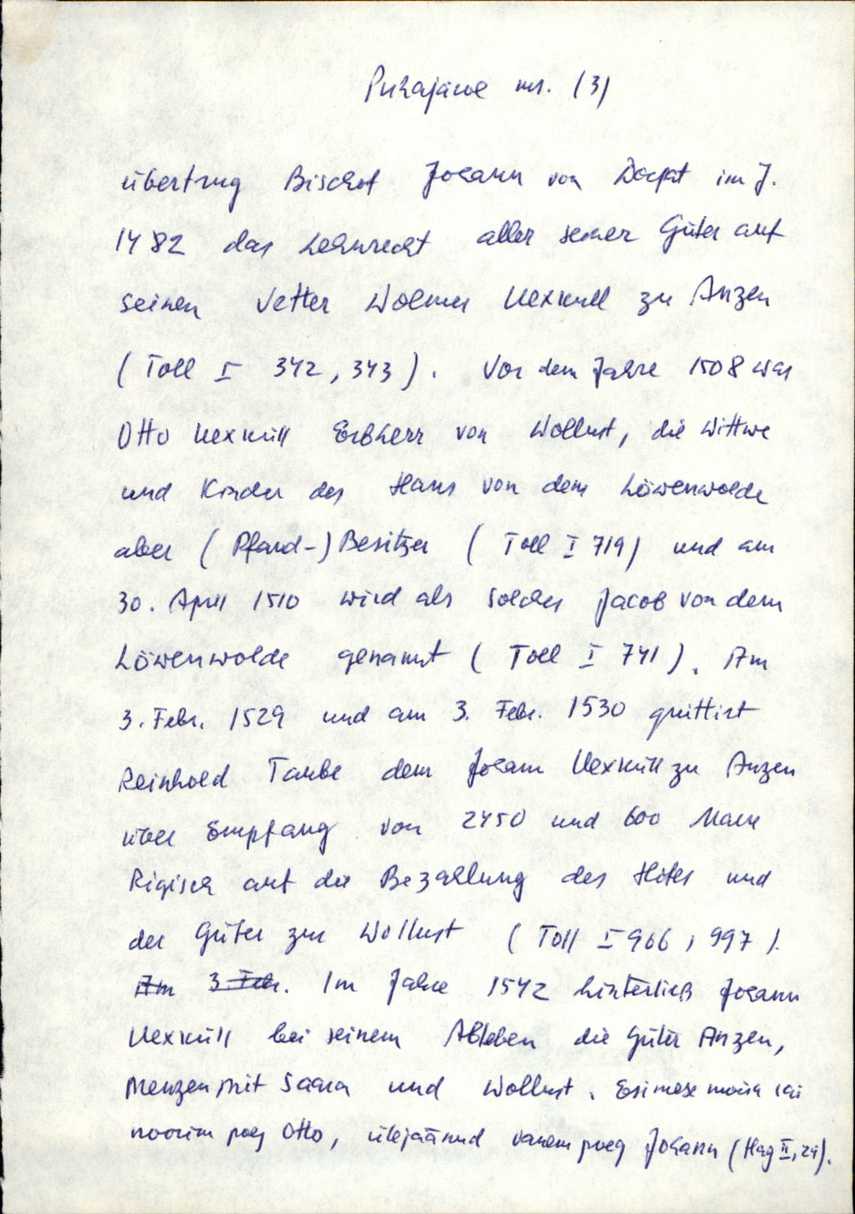 Puhajärve ms. (3)
übertrug Bischof Johann von Dorpat im J.
1482 das Lehnrecht aller seiner Güter auf
seinen Vetter Wolmer Uexküll zu Anzen
(Toll I 342, 343). Vor dem Jahre 1508 war
Otto Uexküll Erbherr von Wollust, die Wittwe
und Kinder des Hans von dem Löwenwolde
aber (Pfand-) Besitzer (Toll I 719) und am
30. April 1510 wird als solcher Jacob von dem
Löwenwolde genannt (Toll I 741). Am
3. Febr. 1529 und am 3. Febr. 1530 quittirt
Reinhold Taube dem Johann Uexküll zu Anzen
über Empfang von 2450 und 600 Mark
Rigisch auf die Bezahlung des Hofes und
der Güter zur Wollust (Toll I 966, 997).
Am 3 Febr. Im Jahre 1542 hinterließ Johann
Uexküll bei seinem Ableben die Güter Anzen,
Menzen mit Saara und Wollust. Esimese mõisa sai
noorim poeg Otto, ülejäänud vanem poeg Johann (Hag II, 24).